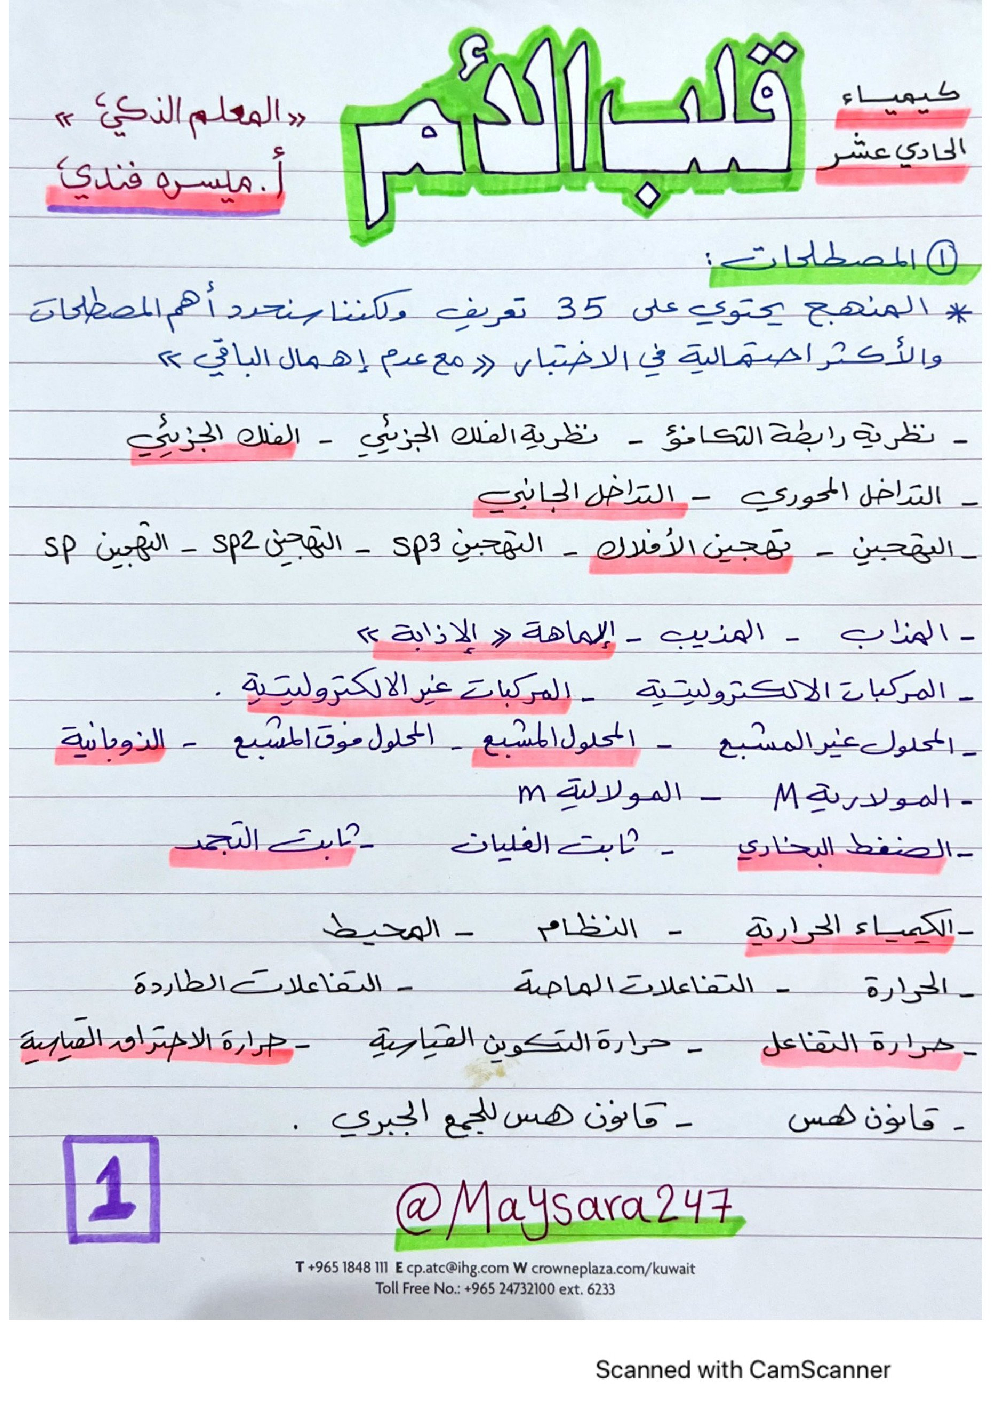 كيمياء
الحادي عشر
قلب الأم
«المعلم الذكي»
أ. ميسره فندي
① المصطلحات:
* المنهج يحتوي على 35 تعريف ولكننا سنحدد أهم المصطلحات
والأكثر احتمالية في الاختبار «مع عدم إهمال الباقي»
- نظرية رابطة التكافؤ - نظرية الفلك الجزيئي - الفلك الجزيئي
- التداخل المحوري - التداخل الجانبي
- التهجين - تهجين الأفلاك - التهجين sp3 - التهجين sp2 - التهجين sp
- المذاب - المذيب - الإماهة «الإذابة»
- المركبات الالكتروليتية - المركبات غير الالكتروليتية .
- المحلول غير المشبع - المحلول المشبع - المحلول فوق المشبع - الذوبانية
- المولارية M - المولالية m
- الضغط البخاري - ثابت الغليان - ثابت التجمد
- الكيمياء الحرارية - النظام - المحيط
- الحرارة - التفاعلات الماصة - التفاعلات الطاردة
- حرارة التفاعل - حرارة التكوين القياسية - حرارة الاحتراق القياسية
- قانون هس - قانون هس للجمع الجبري .
1
@Maysara247
T +965 1848 111 E cp.atc@ihg.com W crowneplaza.com/kuwait
Toll Free No.: +965 24732100 ext. 6233
Scanned with CamScanner